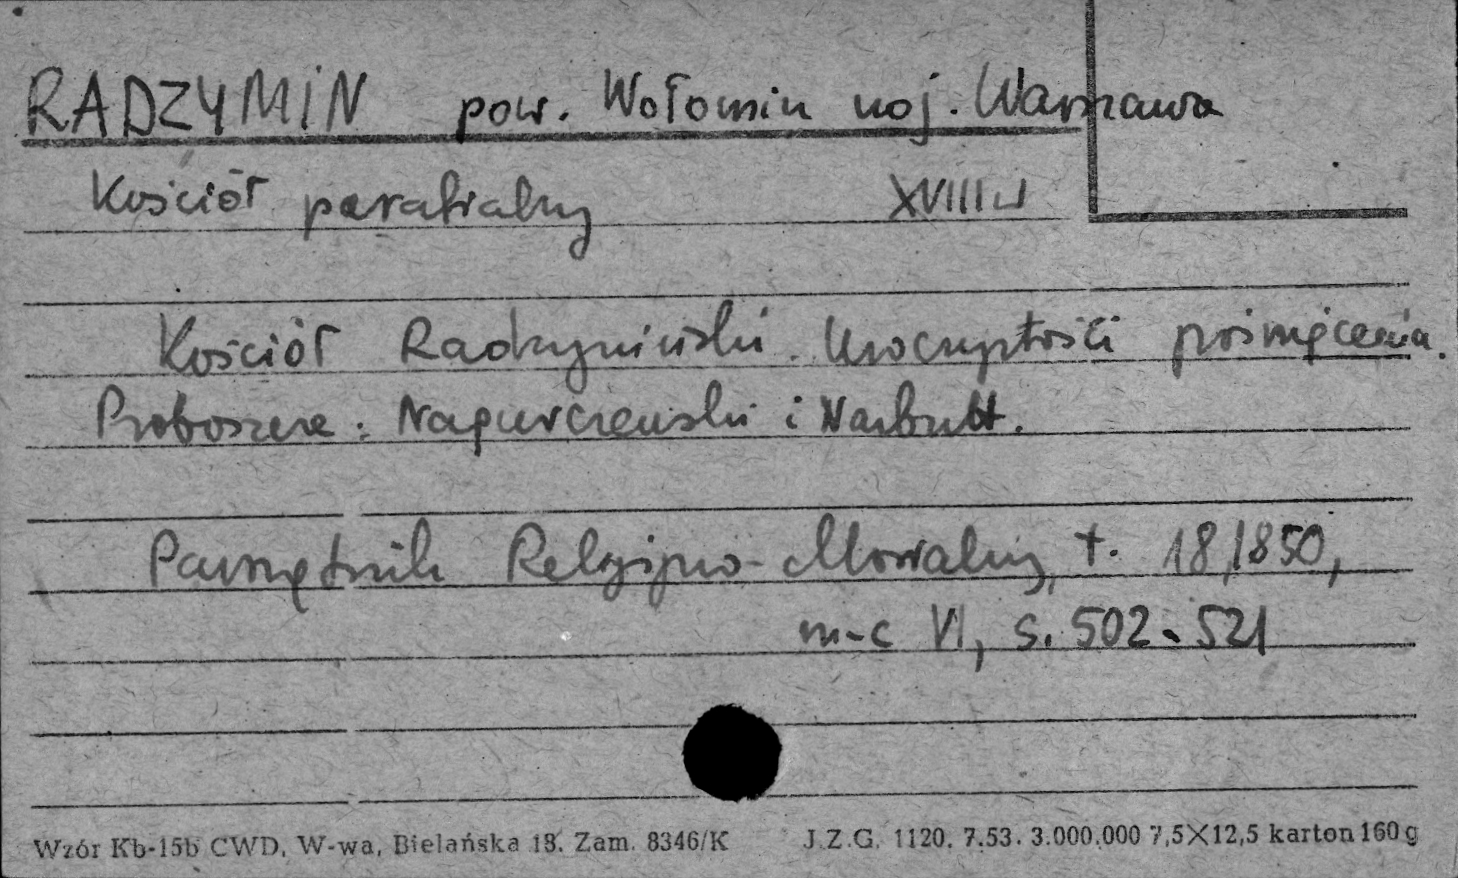 RADZYMIN pow. Wołomin woj. Warszawa
Kościół parafialny XVIII w
Kościół Radzymiński. Uroczystości poświęcenia.
Proboszcze: Napurczewski i Narbutt.
Pamiętnik Religijno-Moralny, t. 18, 1850,
m-c VI, s. 502-521
Wzór Kb-15b CWD, W-wa, Bielańska 18. Zam. 8346/K J.Z.G. 1120. 7.53. 3.000.000 7,5X12,5 karton 160 g